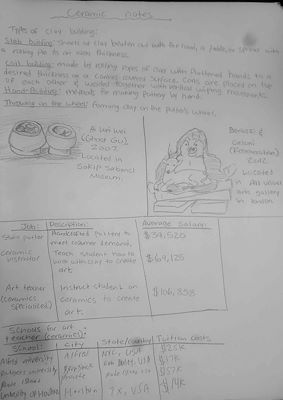 Ceramic notes
Types of clay building:
Slab building: Sheets of clay beaten out with the hand, a paddle, or
a rolling pin to an even thickness.
Coil building: made by rolling ropes of clay with flattened hands to a
desired thickness on a canvas covered surface. Coils are placed on top
of each other & welded together with vertical wiping movements.
Hand-Building: methods for making pottery by hand.
Throwing on the wheel: forming clay on the potter's wheel.
Ai Wei Wei
(Ghost Gu)
2007
Located in
Sakip Sabanci
Museum
2012
Located
in
art gallery
in London
Job:
Description:
Average Salary:
Handcrafted pottery to
meet customer demand.
$39,520
Ceramic
instructor
Teach student how to
work with clay to create
art.
$69,125
Art teacher
(ceramics
specialized)
Instruct students on
ceramics to create
art.
Schools for art
teacher (ceramics):
School:
City
State/country
Tuition costs
Alfred University
Alfred
NYC, USA
Rutgers University
USA
Rhode Island
Providence
University of Houston
Houston
TX, USA